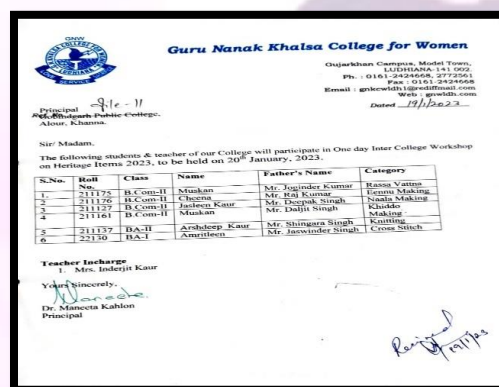 GNW
KHALSA COLLEGE FOR WOMEN
LUDHIANA
LOVE SERVICE
Guru Nanak Khalsa College for Women
Gujarkhan Campus, Model Town,
LUDHIANA-141 002.
Ph. : 0161-2424668, 2772561
Fax : 0161-2424668
Email : gnkcwldh1@rediffmail.com
Web : gnwldh.com
Dated 19/1/2023
File - 11
Principal
Public College.
Alour, Khanna.
Sir/ Madam,
The following students & teacher of our College will participate in One day Inter College Workshop
on Heritage Items 2023, to be held on 20th January, 2023.
S.No. Roll No. Class Name Father's Name Category
1. 211175 B.Com-II Muskan Mr. Joginder Kumar Rassa Vatna
2 211176 B.Com-II Cheena Mr. Raj Kumar Eennu Making
3 211127 B.Com-II Jasleen Kaur Mr. Deepak Singh Naala Making
4 211161 B.Com-II Muskan Mr. Daljit Singh Khiddo Making
5 211137 BA-II Arshdeep Kaur Mr. Shingara Singh Knitting
6 22130 BA-I Amritleen Mr. Jaswinder Singh Cross Stitch
Teacher Incharge
1. Mrs. Inderjit Kaur
Yours Sincerely,
Maneeta
Dr. Maneeta Kahlon
Principal
Received
19/1/23